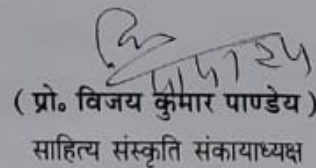 ( प्रो० विजय कुमार पाण्डेय )
साहित्य संस्कृति संकायाध्यक्ष